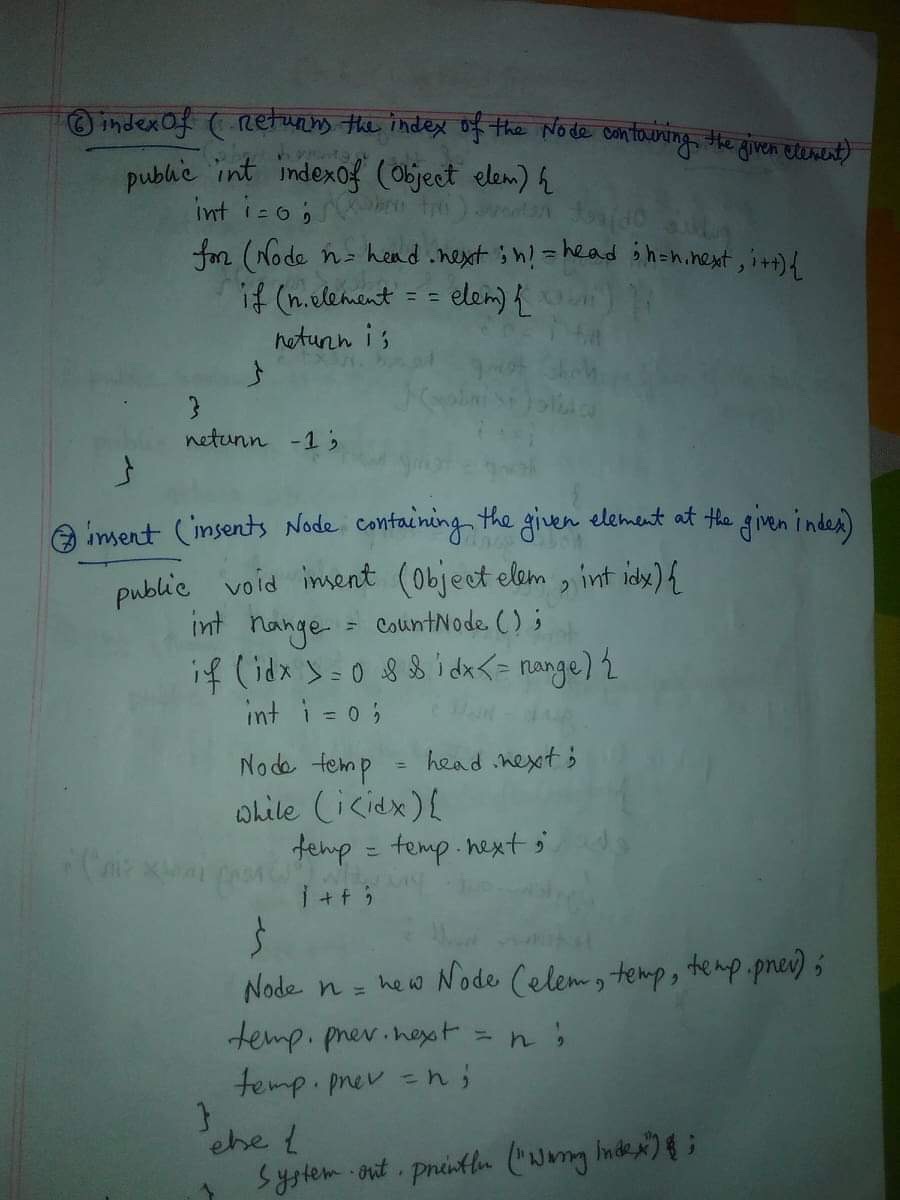 ⑥ indexOf ( returns the index of the Node containing the given element)
public int indexOf (Object elem) {
int i = 0 ;
for (Node n = head .next ; n! = head ; n=n.next , i++) {
if (n.element = = elem) {
return i ;
}
}
return -1 ;
}
⑦ insert (inserts Node containing the given element at the given index)
public void insert (Object elem , int idx) {
int range = countNode () ;
if (idx > = 0 && idx <= range) {
int i = 0 ;
Node temp = head .next ;
while (i<idx) {
temp = temp . next ;
i ++ ;
}
Node n = new Node (elem, temp, temp.prev) ;
temp. prev. next = n ;
temp. prev = n ;
}
else {
System . out . println ("Wrong Index") ;
}